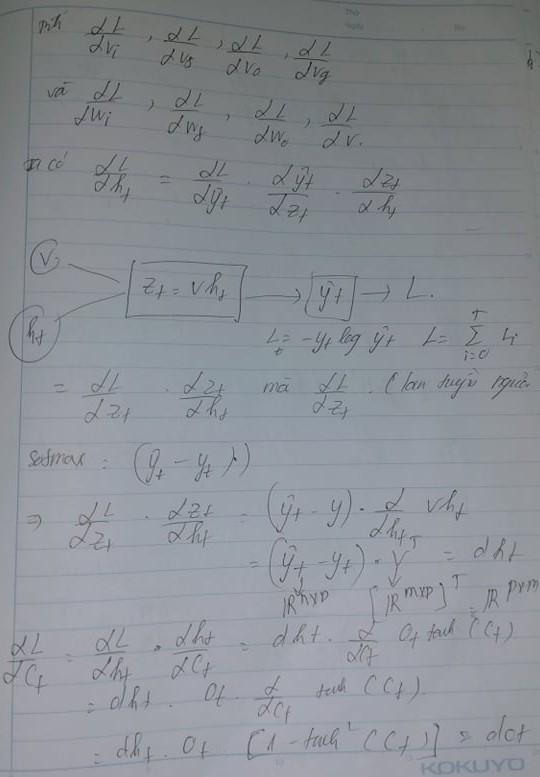 tính dL/dVi , dL/dVf , dL/dVo , dL/dVg
và dL/dWi , dL/dWf , dL/dWo , dL/dV.
ta có dL/dht = dL/dŷt . dŷt/dzt . dzt/dht
V
zt = Vht → ŷt → L.
ht
Lt = -yt log ŷt L = Σ_{i=0}^{T} Li
= dL/dzt . dzt/dht mà dL/dzt . (lan truyền ngược
softmax : (ŷt - yt))
⇒ dL/dzt . dzt/dht = (ŷt - y) . d/dht Vht
= (ŷt - yt) . V^T = dht
[ℝ^{mxp}]^T = ℝ^{pxm}
dL/dCt = dL/dht . dht/dCt = dht . d/dCt Ot tanh (Ct)
= dht . Ot . d/dCt tanh (Ct).
= dht . Ot . [1 - tanh² (Ct)] = dct
KOKUYO